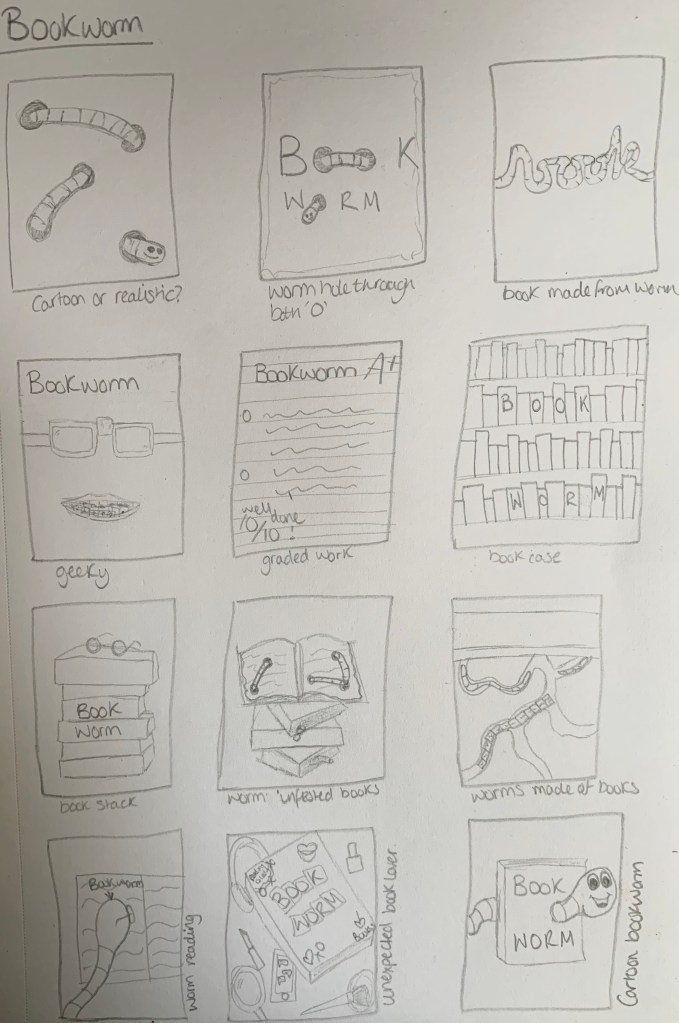 Bookworm
Cartoon or realistic?
B K
W RM
worm hole through
both 'O'
book
book made from worm
Bookworm
geeky
Bookworm A+
well
done
10/10!
graded work
BOOK
WORM
book case
Book
Worm
book stack
worm 'infested books
worms made of books
Bookworm
worm reading
BOOK
WORM
XO
unexpected book lover.
BOOK
WORM
Cartoon bookworm